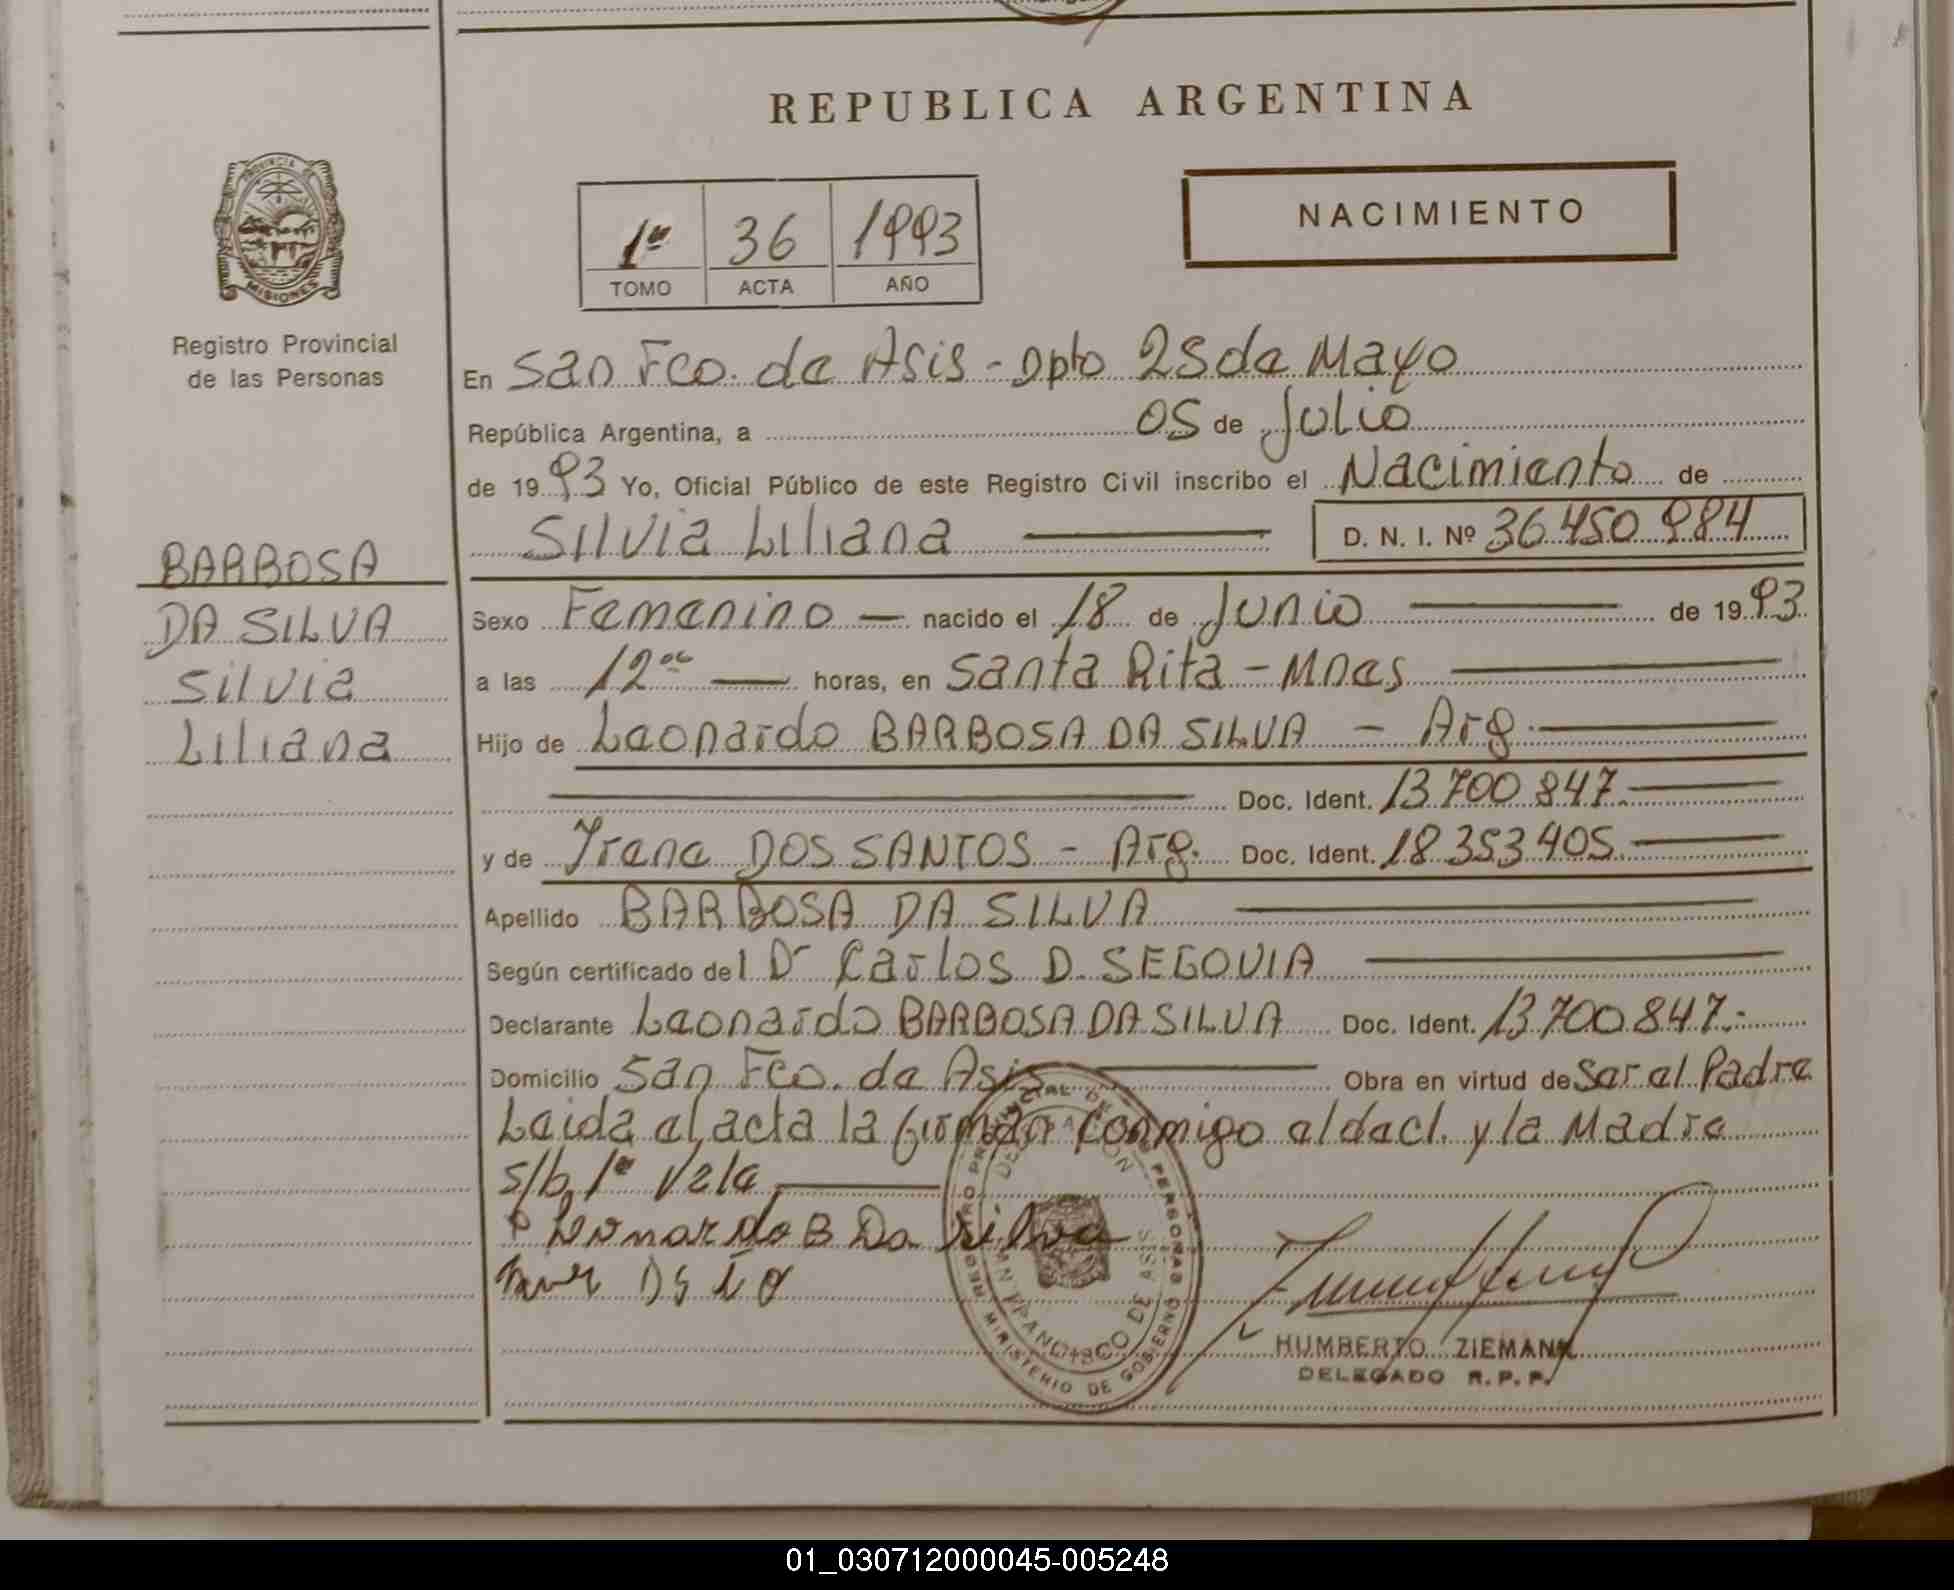 REPUBLICA ARGENTINA
PROVINCIA DE
MISIONES
Registro Provincial
de las Personas
1º 36 1993
TOMO ACTA AÑO
NACIMIENTO
En San Fco. de Asis - Dpto 25 de Mayo
República Argentina, a 05 de Julio
de 1993 Yo, Oficial Público de este Registro Civil inscribo el Nacimiento de
Silvia Liliana D. N. I. Nº 36.450.984
BARBOSA
DA SILVA
Silvia
Liliana
Sexo Femenino — nacido el 18 de Junio de 1993
a las 12 ºº — horas, en Santa Rita - Mnes
Hijo de Leonardo BARBOSA DA SILVA - Arg.
Doc. Ident. 13.700.847.
y de Yrene DOS SANTOS - Arg. Doc. Ident. 18.353.405.
Apellido BARBOSA DA SILVA
Según certificado del Dr Carlos D. SEGOVIA
Declarante Leonardo BARBOSA DA SILVA Doc. Ident. 13.700.847.-
Domicilio San Fco. de Asis Obra en virtud de Ser el Padre
Leida el acta la firman conmigo el decl. y la Madre
s/b, 1ª Vale
Leonardo B Da Silva
REGISTRO PROVINCIAL DE LAS PERSONAS
DELEGACION
SAN FRANCISCO DE ASIS
MINISTERIO DE GOBIERNO
HUMBERTO ZIEMANN
DELEGADO R. P. P.
01_030712000045-005248